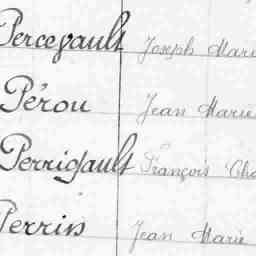 Percevault Joseph Marie
Pérou Jean Marie
Perrigault François Cha
Perrin Jean Marie